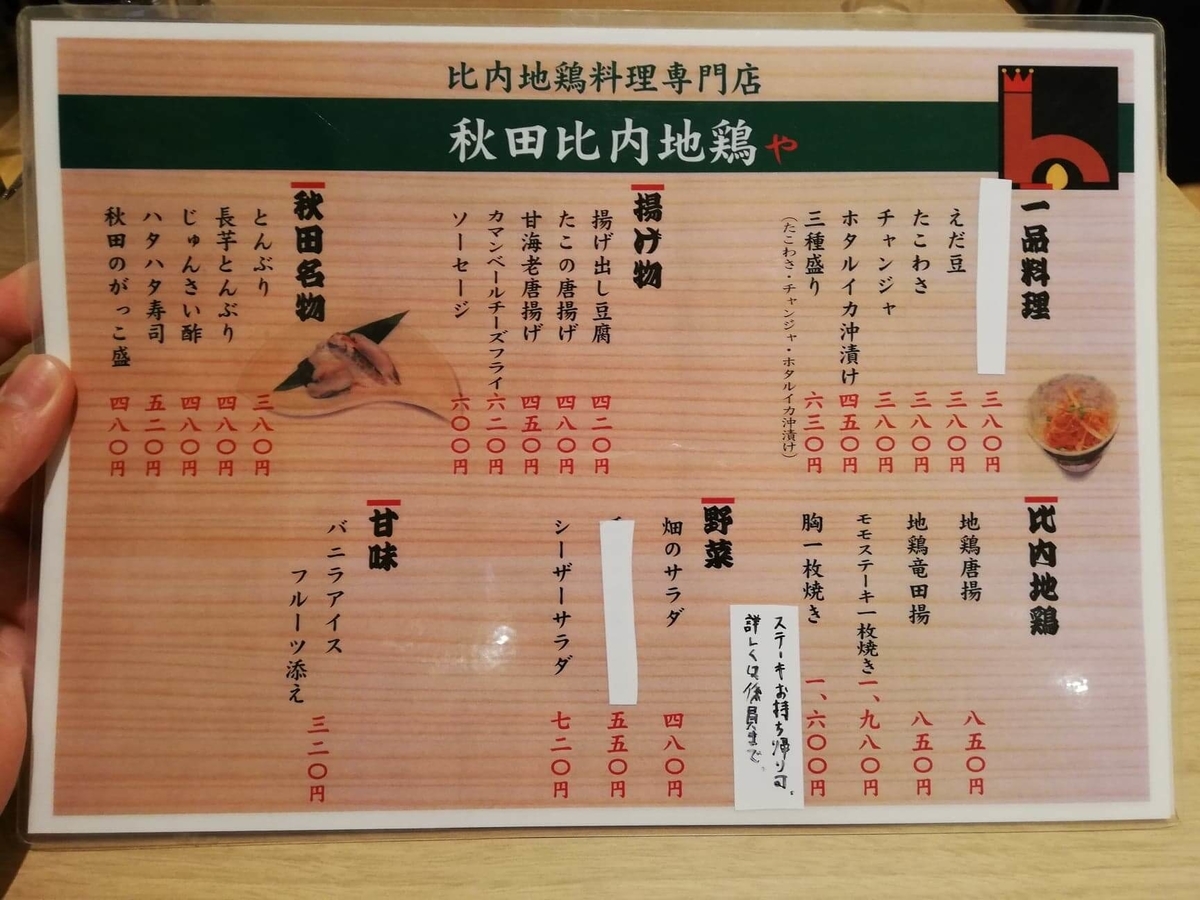 比内地鶏料理専門店
秋田比内地鶏や
一品料理
三八〇円
えだ豆 三八〇円
たこわさ 三八〇円
チャンジャ 三八〇円
ホタルイカ沖漬け 四五〇円
三種盛り 六三〇円
（たこわさ・チャンジャ・ホタルイカ沖漬け）
揚げ物
揚げ出し豆腐 四二〇円
たこの唐揚げ 四八〇円
甘海老唐揚げ 四五〇円
カマンベールチーズフライ 六二〇円
ソーセージ 六〇〇円
秋田名物
とんぶり 三八〇円
長芋とんぶり 四八〇円
じゅんさい酢 四八〇円
ハタハタ寿司 五二〇円
秋田のがっこ盛 四八〇円
比内地鶏
地鶏唐揚 八五〇円
地鶏竜田揚 八五〇円
モモステーキ一枚焼き 一、九八〇円
胸一枚焼き 一、六〇〇円
ステーキお持ち帰り可。
詳しくは係員まで。
野菜
畑のサラダ 四八〇円
五五〇円
シーザーサラダ 七二〇円
甘味
バニラアイス
フルーツ添え 三二〇円